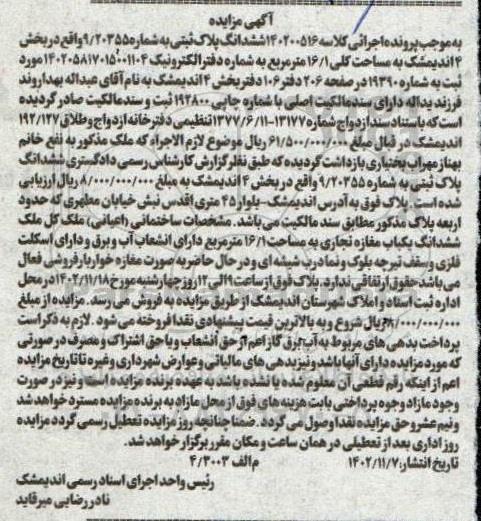 آگهی مزایده
به موجب پرونده اجرائی کلاسه ۱۴۰۲۰۰۵۱۶ ششدانگ پلاک ثبتی به شماره ۹/۲۰۳۵۵ واقع در بخش
۴ اندیمشک به مساحت کلی ۱۶/۱ مترمربع به شماره دفتر الکترونیک ۱۴۰۲۰۵۸۱۷۰۱۵۰۰۱۱۰۴ مورد
ثبت به شماره ۱۹۳۹۰ در صفحه ۲۰۶ دفتر ۱۰۶ دفتر بخش ۴ اندیمشک به نام آقای عبداله بهداروند
فرزند یداله دارای سند مالکیت اصلی با شماره چاپی ۱۹۲۸۰۰ ثبت و سند مالکیت صادر گردیده
است که با استناد سند ازدواج شماره ۱۳۱۷۷-۱۳۷۷/۶/۱۱ تنظیمی دفترخانه ازدواج و طلاق ۱۹۲/۱۲۷
اندیمشک در قبال مبلغ ۶۱/۵۰۰/۰۰۰/۰۰۰ ریال موضوع لازم الاجراء که ملک مذکور به نفع خانم
بهناز مهراب بختیاری بازداشت گردیده که طبق نظر گزارش کارشناس رسمی دادگستری ششدانگ
پلاک ثبتی به شماره ۹/۲۰۳۵۵ واقع در بخش ۴ اندیمشک به مبلغ ۸/۰۰۰/۰۰۰/۰۰۰ ریال ارزیابی
شده است. پلاک فوق به آدرس اندیمشک-بلوار ۴۵ متری اقدس نبش خیابان مطهری که حدود
اربعه پلاک مذکور مطابق سند مالکیت می باشد. مشخصات ساختمانی (اعیانی) ملک کل ملک
ششدانگ یکباب مغازه تجاری به مساحت ۱۶/۱ مترمربع دارای انشعاب آب و برق و دارای اسکلت
فلزی و سقف تیرچه بلوک و نما درب شیشه ای و در حال حاضر به صورت مغازه خواربار فروشی فعال
می باشد حقوق ارتفاقی ندارد. پلاک فوق از ساعت ۹ الی ۱۲ روز چهارشنبه مورخ ۱۴۰۲/۱۱/۱۸ در محل
اداره ثبت اسناد و املاک شهرستان اندیمشک از طریق مزایده به فروش می رسد. مزایده از مبلغ
۸/۰۰۰/۰۰۰/۰۰۰ ریال شروع و به بالاترین قیمت پیشنهادی نقدا فروخته می شود. لازم به ذکر است
پرداخت بدهی های مربوط به آب، برق، گاز اعم از حق انشعاب و یا حق اشتراک و مصرف در صورتی
که مورد مزایده دارای آنها باشد و نیز بدهی های مالیاتی و عوارض شهرداری و غیره تا تاریخ مزایده
اعم از اینکه رقم قطعی آن معلوم شده یا نشده باشد به عهده برنده مزایده است و نیز در صورت
وجود مازاد وجوه پرداختی بابت هزینه های فوق از محل مازاد به برنده مزایده مسترد خواهد شد
و نیم عشر و حق مزایده نقدا وصول می گردد. ضمنا چنانچه روز مزایده تعطیل رسمی گردد مزایده
روز اداری بعد از تعطیلی در همان ساعت و مکان مقرر برگزار خواهد شد.
تاریخ انتشار: ۱۴۰۲/۱۱/۷ م الف ۴/۳۰۰۳
رئیس واحد اجرای اسناد رسمی اندیمشک
نادر رضایی میرقاید